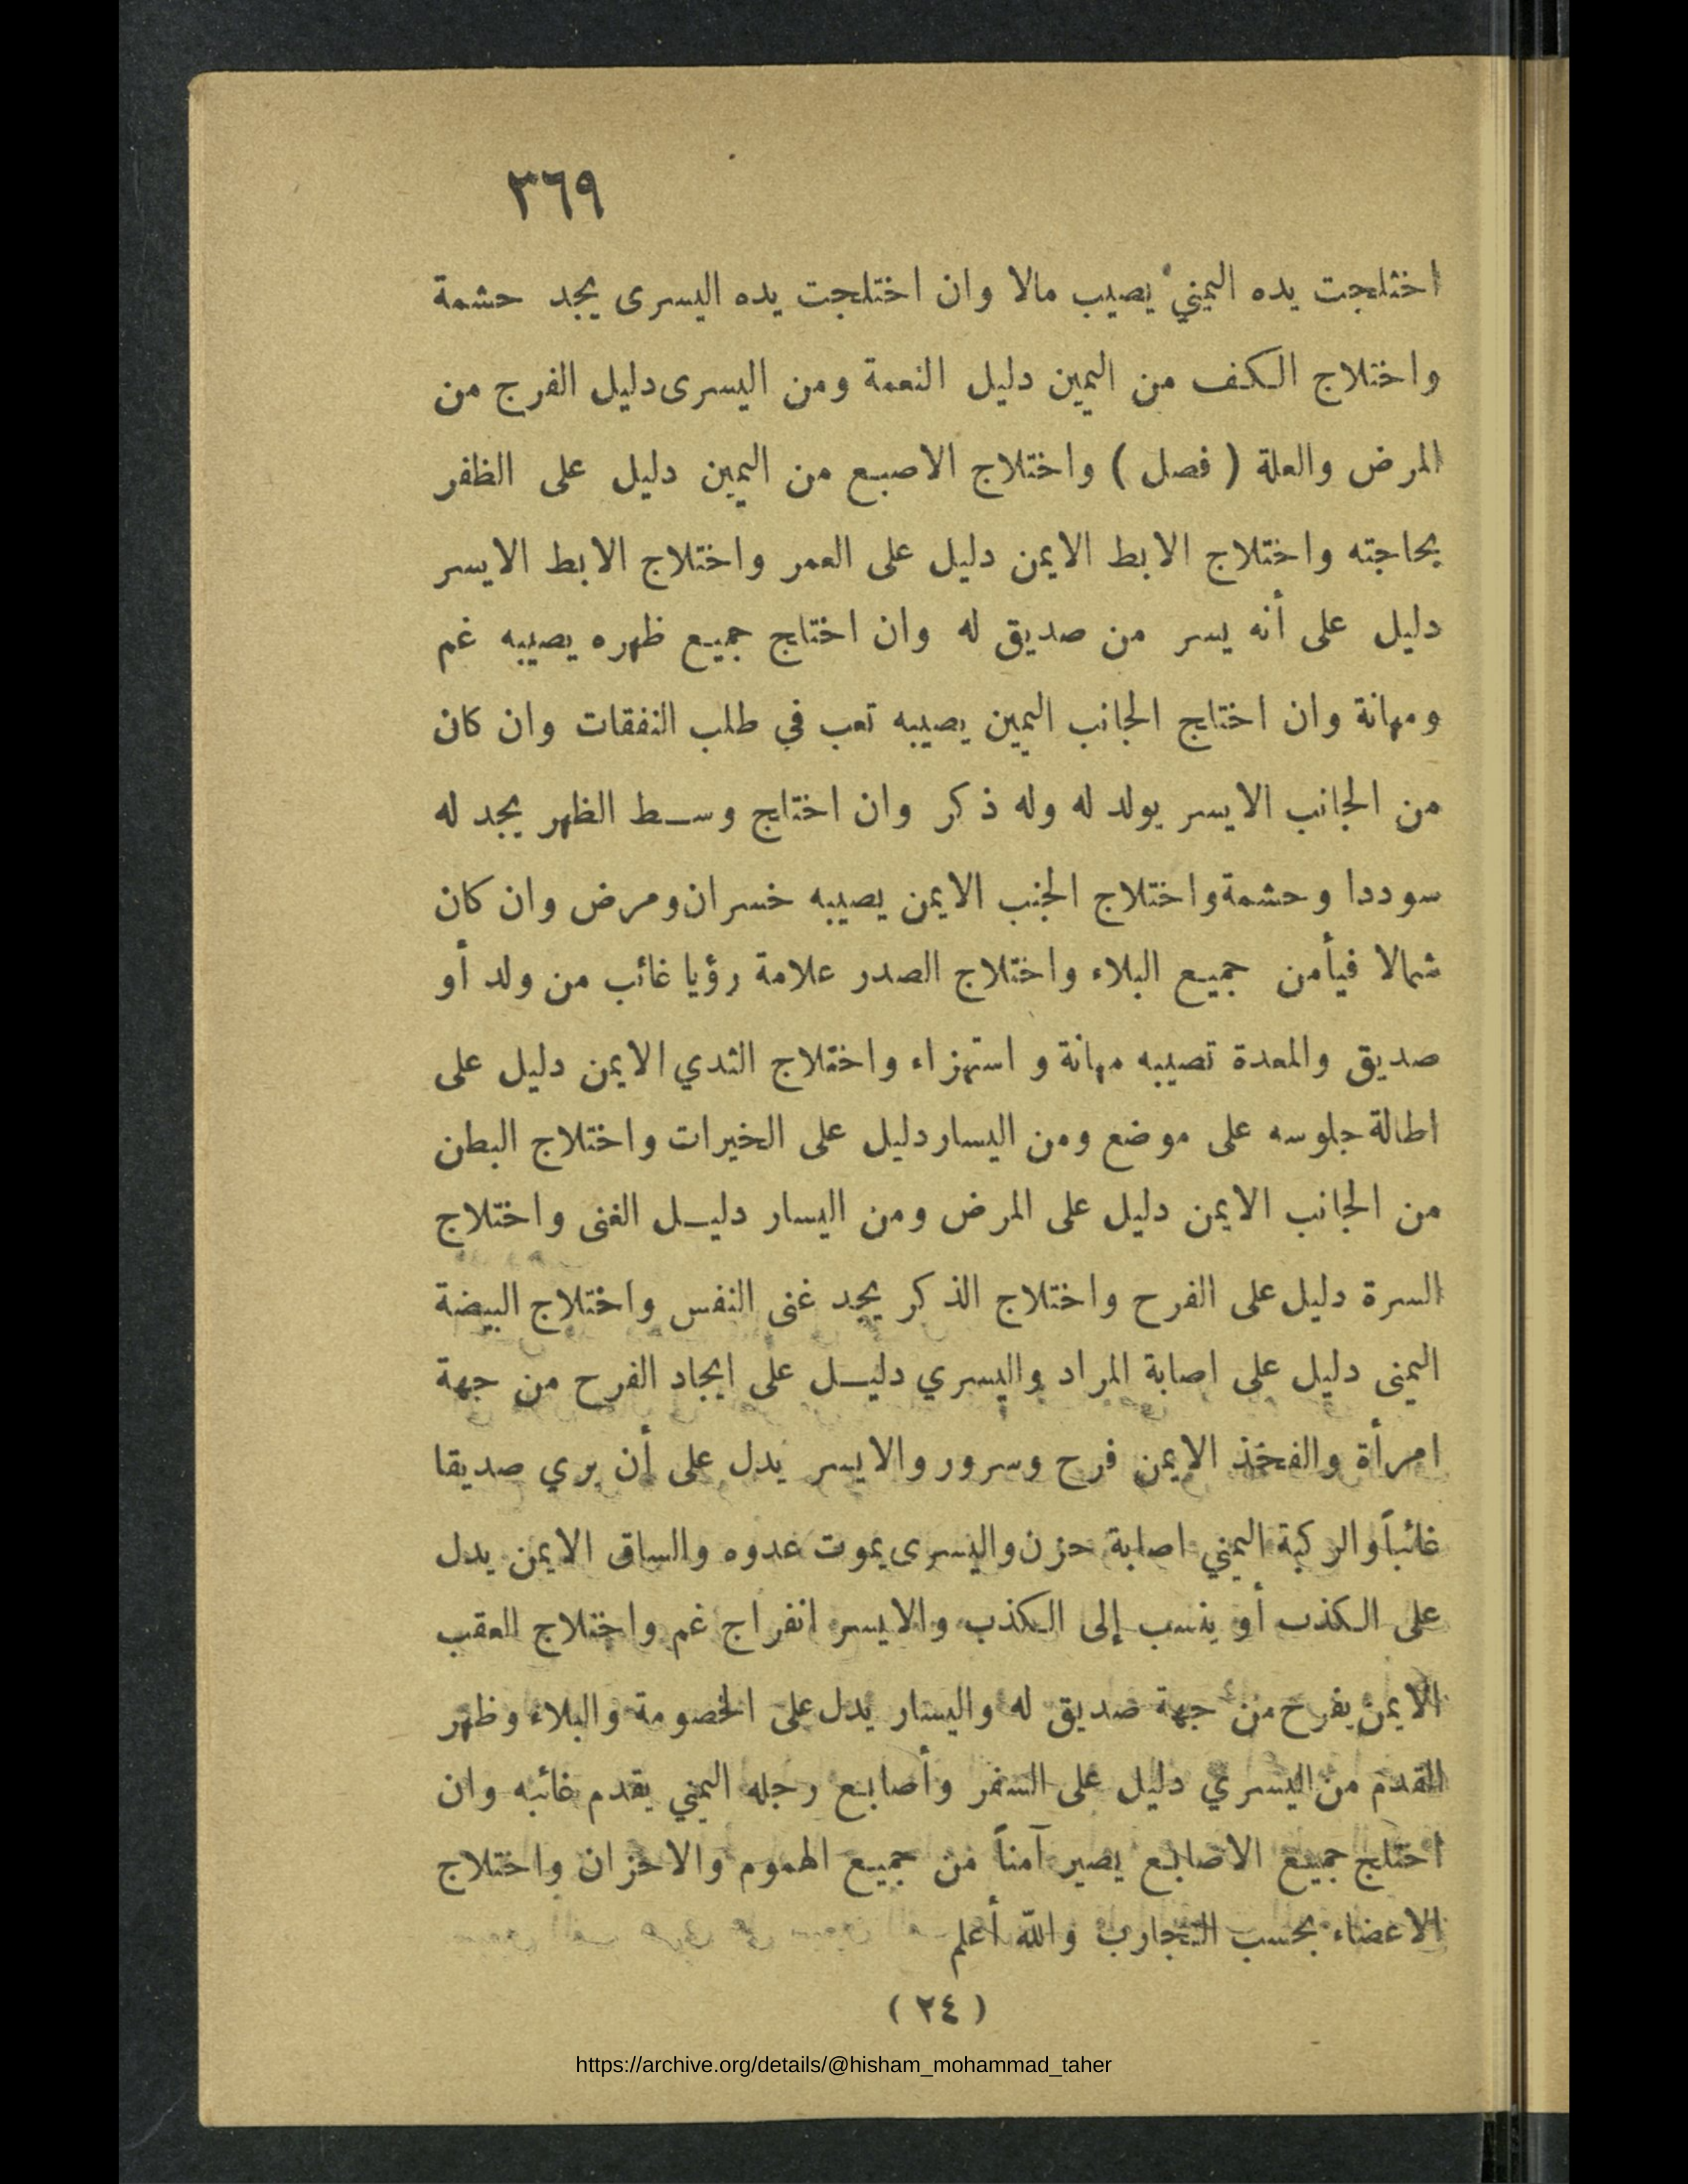 ٣٦٩
اختلجت يده اليمني يصيب مالا وان اختلجت يده اليسرى يجد حشمة
واختلاج الكف من اليمين دليل النعمة ومن اليسرى دليل الفرج من
المرض والعلة ( فصل ) واختلاج الاصبع من اليمين دليل على الظفر
بحاجته واختلاج الابط الايمن دليل على العمر واختلاج الابط الايسر
دليل على أنه يسر من صديق له وان اختاج جميع ظهره يصيبه غم
ومهانة وان اختاج الجانب اليمين يصيبه تعب في طلب النفقات وان كان
من الجانب الايسر يولد له وله ذكر وان اختاج وسط الظهر يجد له
سوددا وحشمة واختلاج الجنب الايمن يصيبه خسران ومرض وان كان
شمالا فيأمن جميع البلاء واختلاج الصدر علامة رؤيا غائب من ولد أو
صديق والمعدة تصيبه مهانة و استهزاء واختلاج الثدي الايمن دليل على
اطالة جلوسه على موضع ومن اليسار دليل على الخيرات واختلاج البطن
من الجانب الايمن دليل على المرض ومن اليسار دليل الغنى واختلاج
السرة دليل على الفرح واختلاج الذكر يجد غنى النفس واختلاج البيضة
اليمنى دليل على اصابة المراد واليسري دليل على ايجاد الفرح من جهة
امرأة والفخذ الايمن فرح وسرور والايسر يدل على أن يري صديقا
غائباً والركبة اليمني اصابة حزن واليسرى يموت عدوه والساق الايمن يدل
على الكذب أو ينسب إلى الكذب والايسر انفراج غم واختلاج العقب
الايمن يفرح من جهة صديق له واليسار يدل على الخصومة والبلاء وظهر
القدم من اليسري دليل على السفر وأصابع رجله اليمني يقدم غائبه وان
اختلج جميع الاصابع يصير آمناً من جميع الهموم والاحزان واختلاج
الاعضاء بحسب التجارب والله أعلم
( ٢٤ )
https://archive.org/details/@hisham_mohammad_taher